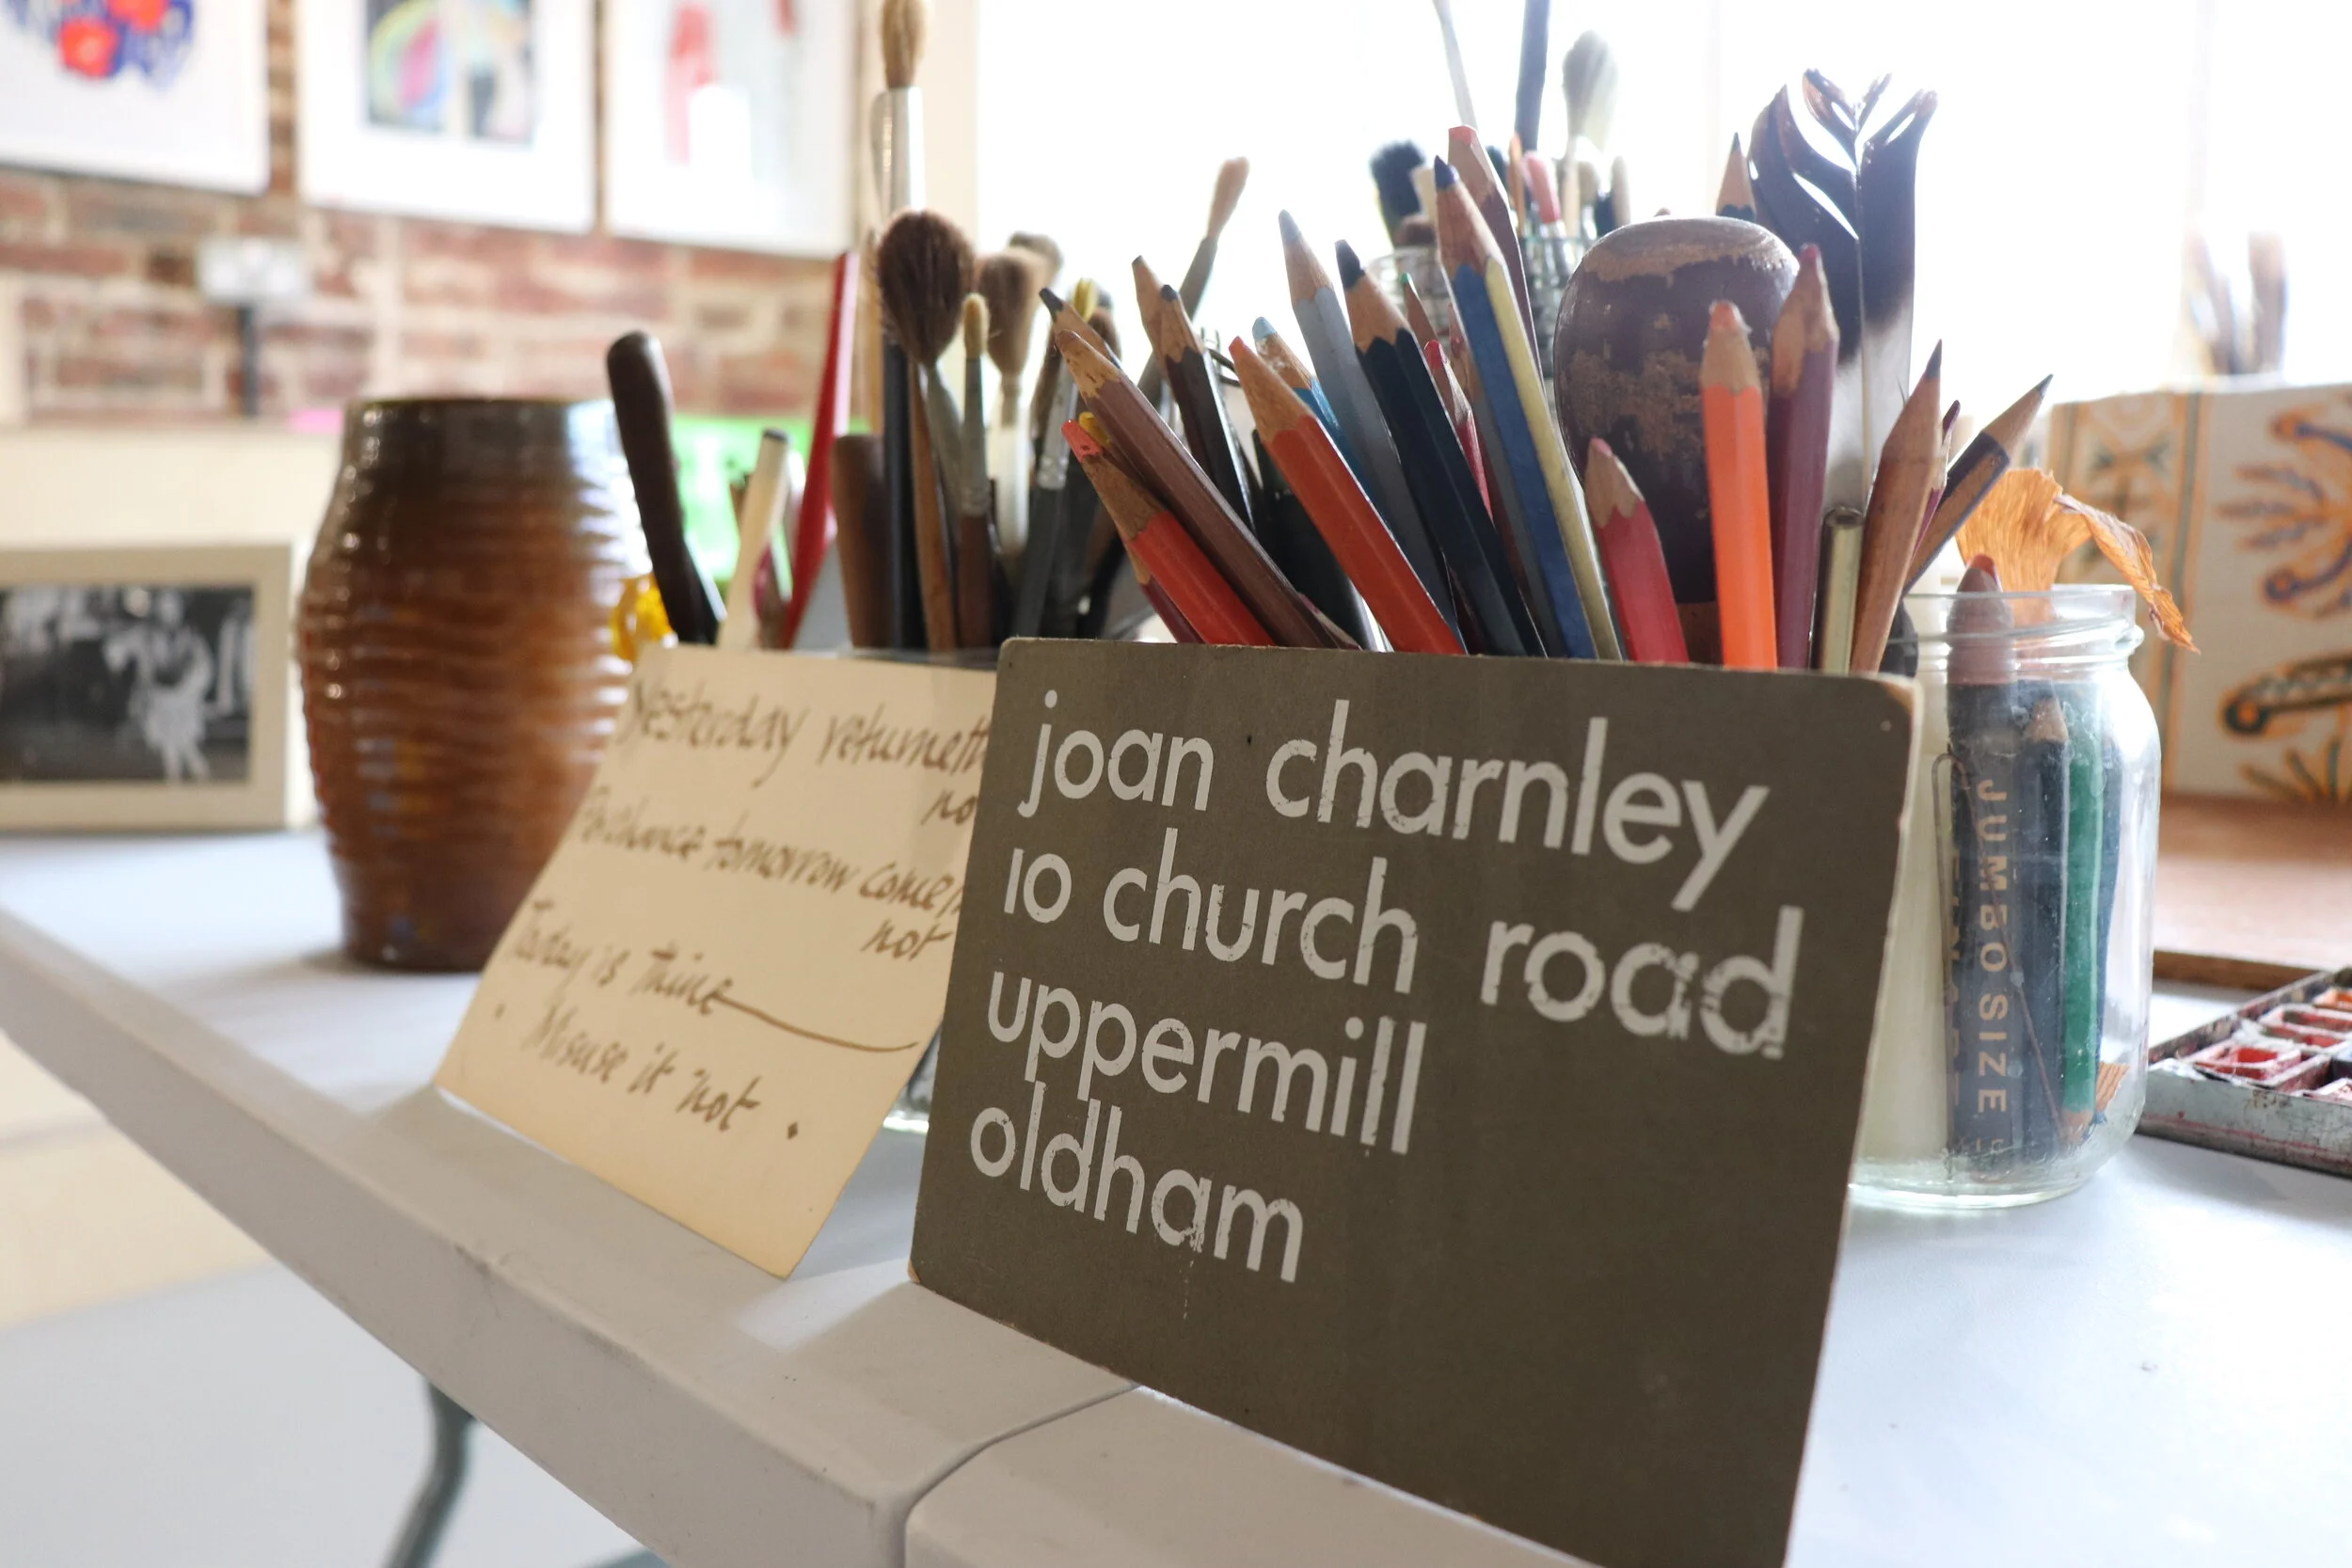 Yesterday returneth
not
Perchance tomorrow cometh
not
Today is thine
Misuse it not.
joan charnley
10 church road
uppermill
oldham
JUMBO SIZE